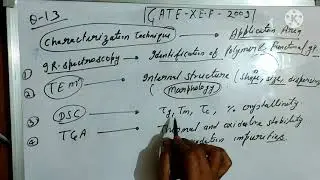 Q-13
GATE-XE-F-2009
Characterization Technique → Application Area
① IR-Spectroscopy → Identification of Polymer & Functional gp.
② TEM → Internal structure (shape, size, dispersion)
(Morphology)
③ DSC → Tg, Tm, Tc, % crystallinity
④ TGA → Thermal and oxidative stability
impurities